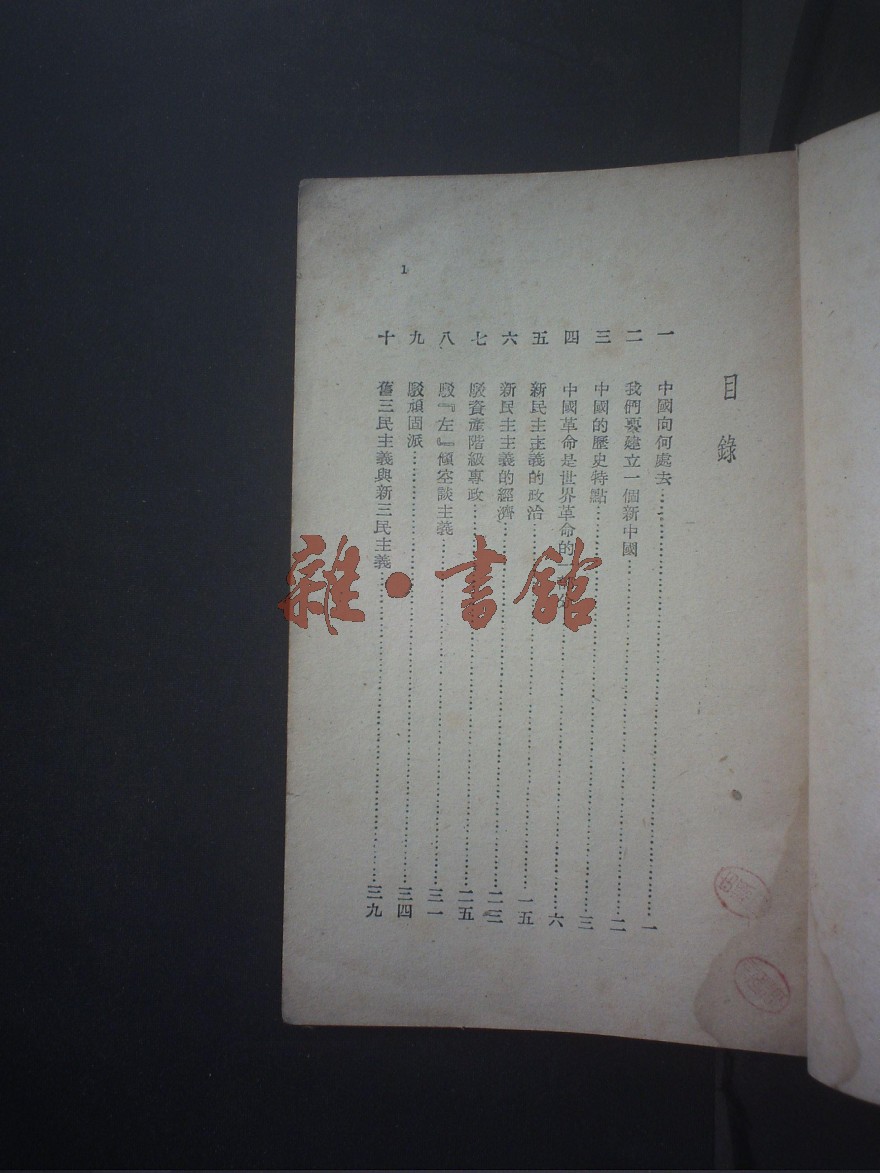 目錄
一 中國向何處去……一
二 我們要建立一個新中國……二
三 中國的歷史特點……三
四 中國革命是世界革命的一部分……六
五 新民主主義的政治……一五
六 新民主主義的經濟……二三
七 駁資產階級專政……二五
八 駁『左』傾空談主義……三一
九 駁頑固派……三四
十 舊三民主義與新三民主義……三九
1
雜·書館